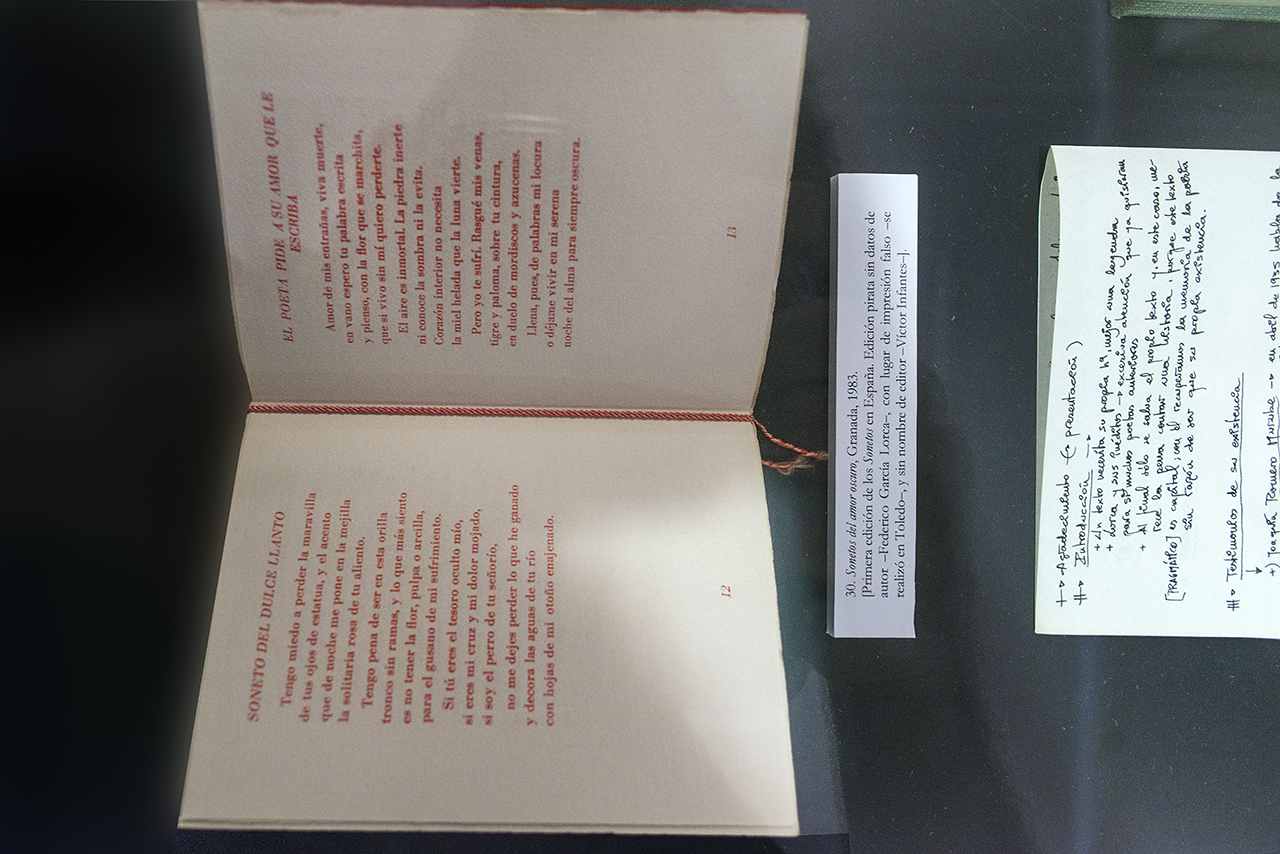 SONETO DEL DULCE LLANTO
Tengo miedo a perder la maravilla
de tus ojos de estatua, y el acento
que de noche me pone en la mejilla
la solitaria rosa de tu aliento.
Tengo pena de ser en esta orilla
tronco sin ramas, y lo que más siento
es no tener la flor, pulpa o arcilla,
para el gusano de mi sufrimiento.
Si tú eres el tesoro oculto mío,
si eres mi cruz y mi dolor mojado,
si soy el perro de tu señorío,
no me dejes perder lo que he ganado
y decora las aguas de tu río
con hojas de mi otoño enajenado.
12
EL POETA PIDE A SU AMOR QUE LE
ESCRIBA
Amor de mis entrañas, viva muerte,
en vano espero tu palabra escrita
y pienso, con la flor que se marchita,
que si vivo sin mí quiero perderte.
El aire es inmortal. La piedra inerte
ni conoce la sombra ni la evita.
Corazón interior no necesita
la miel helada que la luna vierte.
Pero yo te sufrí. Rasgué mis venas,
tigre y paloma, sobre tu cintura,
en duelo de mordiscos y azucenas.
Llena, pues, de palabras mi locura
o déjame vivir en mi serena
noche del alma para siempre oscura.
13
30. Sonetos del amor oscuro, Granada, 1983.
[Primera edición de los Sonetos en España. Edición pirata sin datos de
autor –Federico García Lorca–, con lugar de impresión falso –se
realizó en Toledo–, y sin nombre de editor –Víctor Infantes–].
Agradecimiento (+ presentación)
Introducción
+ Un texto necesita su propia hª, mejor una leyenda
+ Lorca y sus inéditos → excesiva atención que ya quisieran
para sí muchos poetas anteriores
+ Al final sólo se salva el propio texto y, en este caso, me-
rece la pena contar una historia, porque este texto
[PRAGMÁTICO] es capital; con él recuperamos la memoria de la poesía
sin razón de ser que su propia existencia.
Testimonios de su existencia
+) Joaquín Romero Murube → en abril de 1935 habla de la